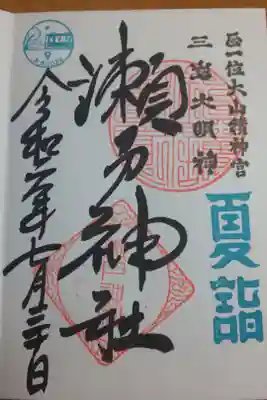 正一位大山積神宮
三島大明神
夏詣
瀬戸神社
令和二年七月
日